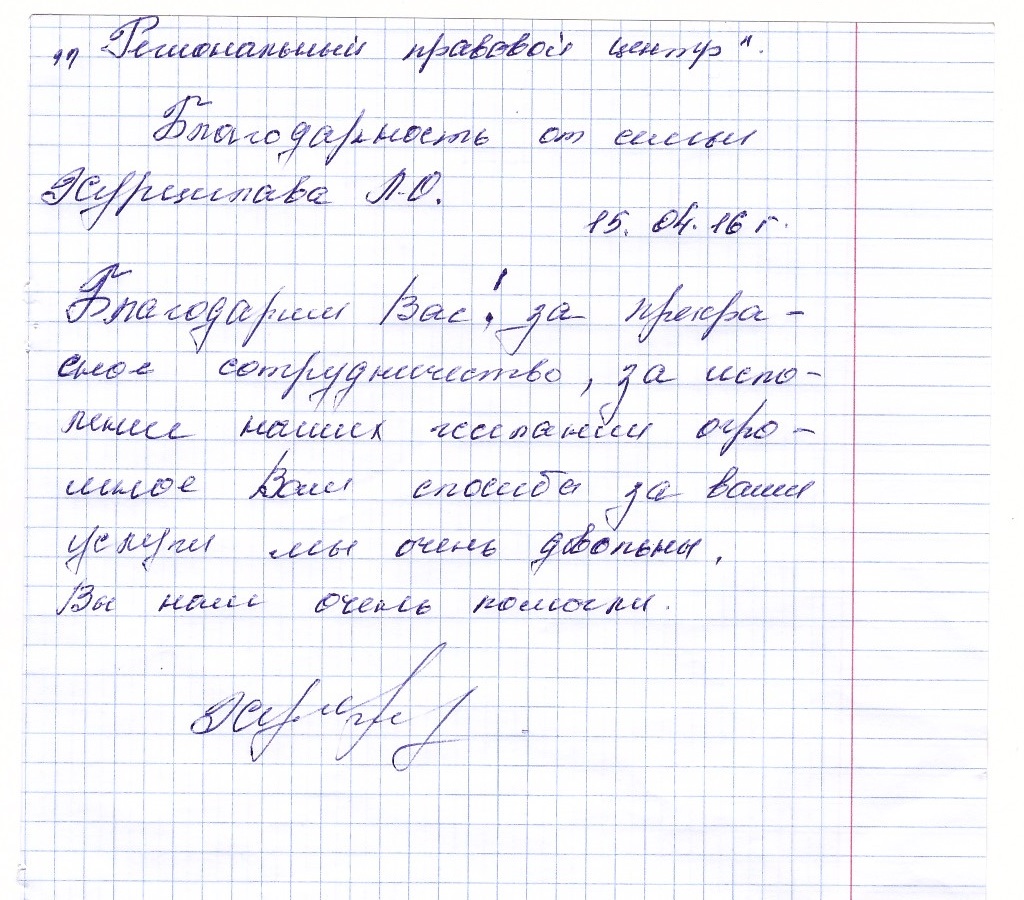 „Региональный правовой центр".
Благодарность от семьи
Хурцилава Л.О.
15.04.16 г.
Благодарим Вас! за прекра-
сное сотрудничество, за испо-
ление наших желаний огро-
мное Вам спосиба за ваши
услуги мы очень довольны.
Вы нам очень помогли.